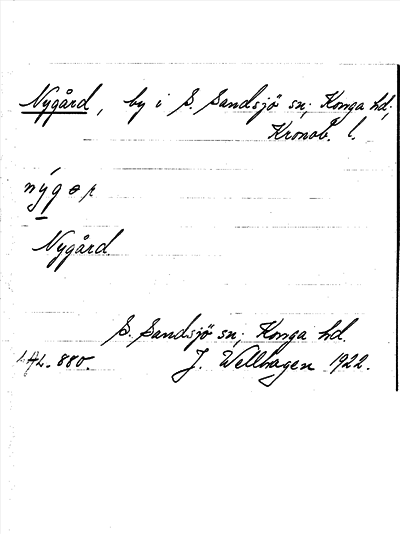 Nygård, by i S. Sandsjö sn; Konga hd;
Kronob. l.
Nygård
S. Sandsjö sn; Konga hd.
LAL. 880. J. Wellhagen 1922.